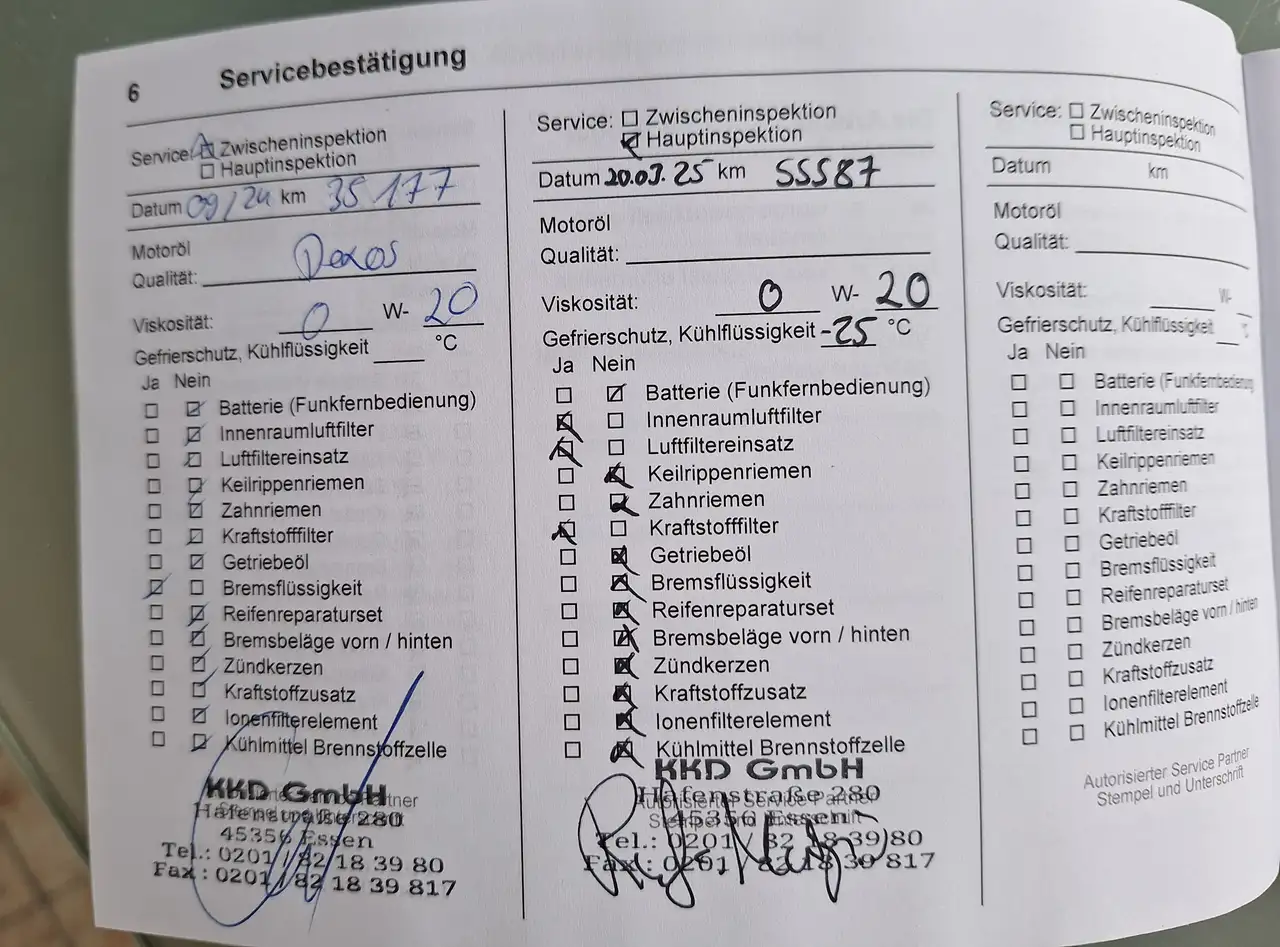 6 Servicebestätigung
Service: Zwischeninspektion
Hauptinspektion
Datum 09/24 km 35 177
Motoröl
Qualität: Dexos
Viskosität: 0 W- 20
Gefrierschutz, Kühlflüssigkeit °C
Ja Nein
Batterie (Funkfernbedienung)
Innenraumluftfilter
Luftfiltereinsatz
Keilrippenriemen
Zahnriemen
Kraftstofffilter
Getriebeöl
Bremsflüssigkeit
Reifenreparaturset
Bremsbeläge vorn / hinten
Zündkerzen
Kraftstoffzusatz
Ionenfilterelement
Kühlmittel Brennstoffzelle
KKD GmbH
Hafenstraße 280
45356 Essen
Tel.: 0201 / 82 18 39 80
Fax : 0201 / 82 18 39 817
Service: Zwischeninspektion
Hauptinspektion
Datum 20.03.25 km 55587
Motoröl
Qualität:
Viskosität: 0 W- 20
Gefrierschutz, Kühlflüssigkeit -25 °C
Ja Nein
Batterie (Funkfernbedienung)
Innenraumluftfilter
Luftfiltereinsatz
Keilrippenriemen
Zahnriemen
Kraftstofffilter
Getriebeöl
Bremsflüssigkeit
Reifenreparaturset
Bremsbeläge vorn / hinten
Zündkerzen
Kraftstoffzusatz
Ionenfilterelement
Kühlmittel Brennstoffzelle
KKD GmbH
Hafenstraße 280
Autorisierter Service Partner
45356 Essen
Tel.: 0201 / 82 18 39 80
Fax : 0201 / 82 18 39 817
Service: Zwischeninspektion
Hauptinspektion
Datum km
Motoröl
Qualität:
Viskosität: W-
Gefrierschutz, Kühlflüssigkeit °C
Ja Nein
Batterie (Funkfernbedienung
Innenraumluftfilter
Luftfiltereinsatz
Keilrippenriemen
Zahnriemen
Kraftstofffilter
Getriebeöl
Bremsflüssigkeit
Reifenreparaturset
Bremsbeläge vorn / hinten
Zündkerzen
Kraftstoffzusatz
Ionenfilterelement
Kühlmittel Brennstoffzelle
Autorisierter Service Partner
Stempel und Unterschrift